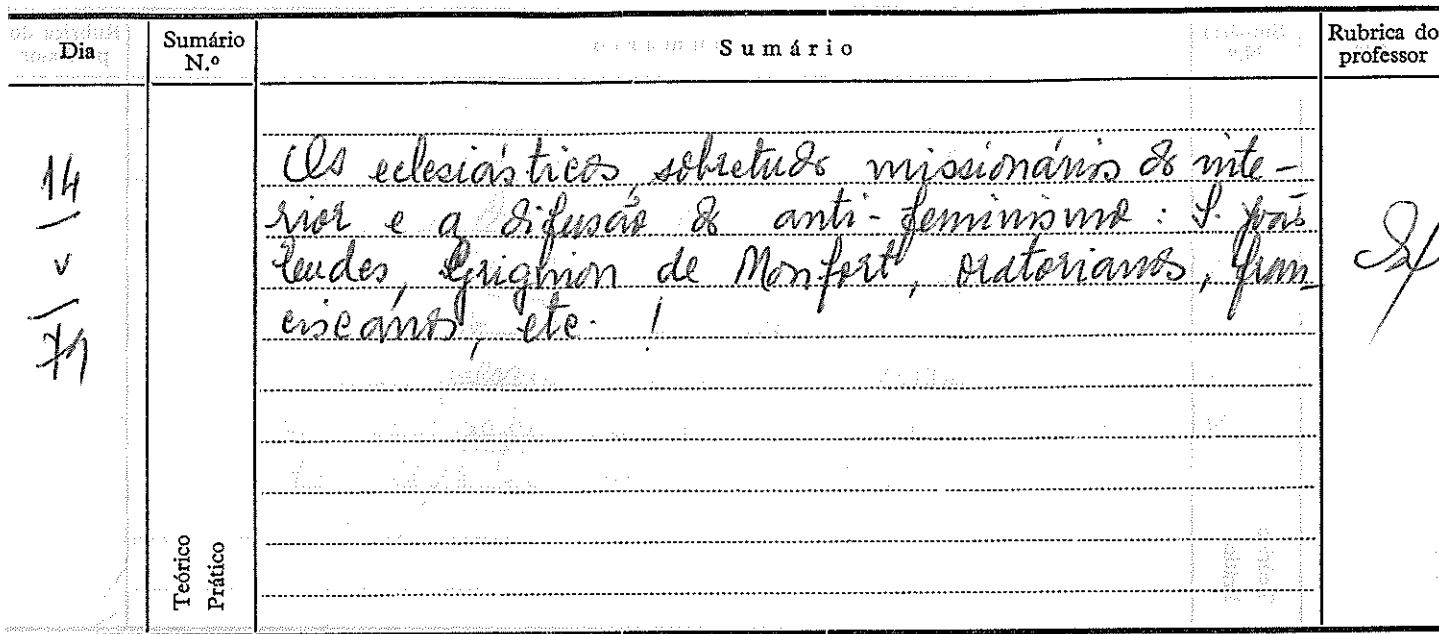 Dia
Sumário N.º
Sumário
Rubrica do professor
14
V
79
Os eclesiásticos, sobretudo missionários do inte-
rior e a difusão do anti-feminismo: S. João
Eudes, Grignion de Monfort, oratorianos, fran-
ciscanos, etc.
Teórico
Prático